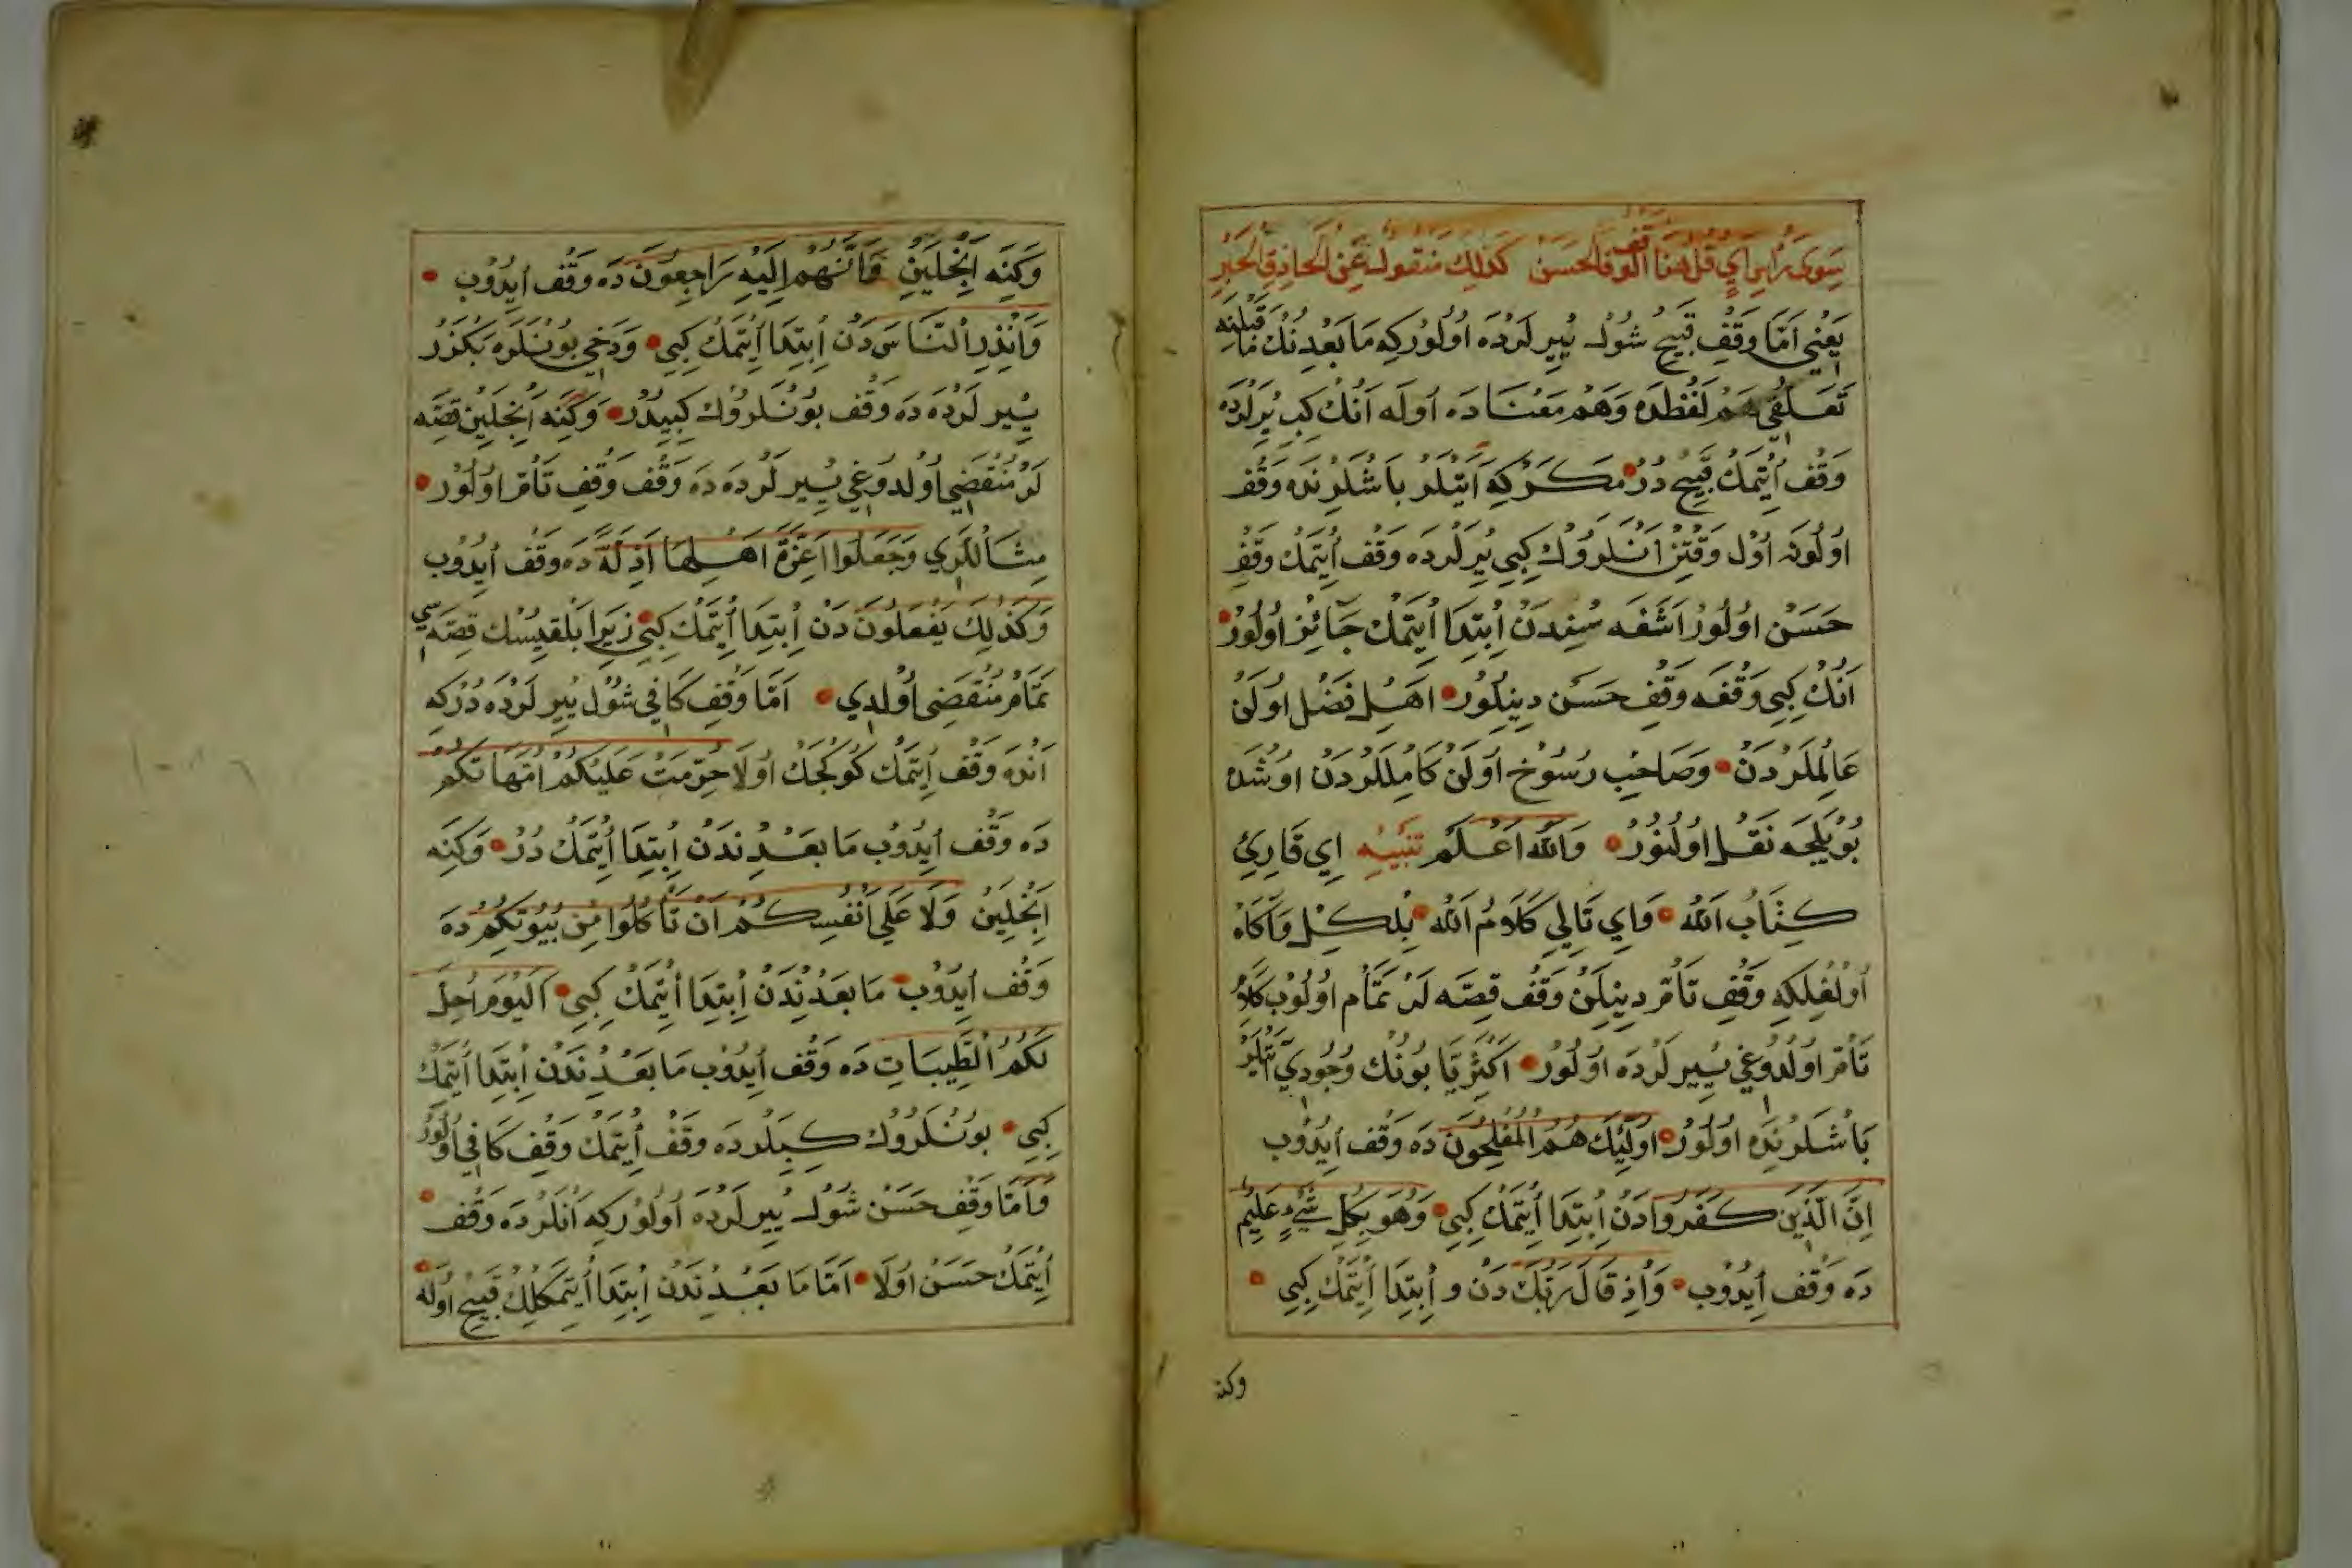 سوى رأس آي قل هنا الوقف الحسن كذلك منقول عن الحاذق الحبر
يعني اما وقف قبيح شول يير لرده اولوركه ما بعدنك ما قبلنه
تعلقي هم لفظده وهم معناده اوله انك كبي يرلرده
وقف ايتمك قبيح در مكركه ايتلر باشلرنده وقف
اولونه اول وقتن انلروك كبي يرلرده وقف ايتمك وقف
حسن اولور اشغه سندن ابتدا ايتمك جائز اولور
انك كبي وقفه وقف حسن دينلور اهل فضل اولن
عالملردن وصاحب رسوخ اولن كامللردن اوشده
بويلجه نقل اولنور والله اعلم تنبيه اي قارئ
كتاب الله واي تالي كلام الله بلكل واكاه
اولغلكه وقف تام دينلن وقف قصه لر تمام اولوب كلام
تام اولدوغي ييرلرده اولور اكثريا بونك وجودي آيتلر
باشلرنده اولور اولئك هم المفلحون ده وقف ايدوب
ان الذين كفروا دن ابتدا ايتمك كبي وهو بكل شيء عليم
ده وقف ايدوب واذ قال ربك دن و ابتدا ايتمك كبي
وكنه
وكنه انجلين وانهم اليه راجعون ده وقف ايدوب
وانذر الناس دن ابتدا ايتمك كبي ودخي بونلره بكزر
ييرلرده ده وقف بونلروك كبيدر وكنه انجلين قصه
لر منقضي اولدوغي ييرلرده ده وقف وقف تام اولور
مثاللري وجعلوا اعزة اهلها اذلة ده وقف ايدوب
وكذلك يفعلون دن ابتدا ايتمك كبي زيرا بلقيسك قصه سي
تمام منقضي اولدي اما وقف كافي شول ييرلرده دركه
انده وقف ايتمك كوكجك اولا حرمت عليكم امهاتكم
ده وقف ايدوب ما بعدندن ابتدا ايتمك در وكنه
انجلين ولا على انفسكم ان تأكلوا من بيوتكم ده
وقف ايدوب ما بعدندن ابتدا ايتمك كبي اليوم احل
لكم الطيبات ده وقف ايدوب ما بعدندن ابتدا ايتمك
كبي بونلروك كبيلرده وقف ايتمك وقف كافي اولور
واما وقف حسن شول ييرلرده اولوركه انلرده وقف
ايتمك حسن اولا اما ما بعدندن ابتدا ايتمكلك قبيح اوله